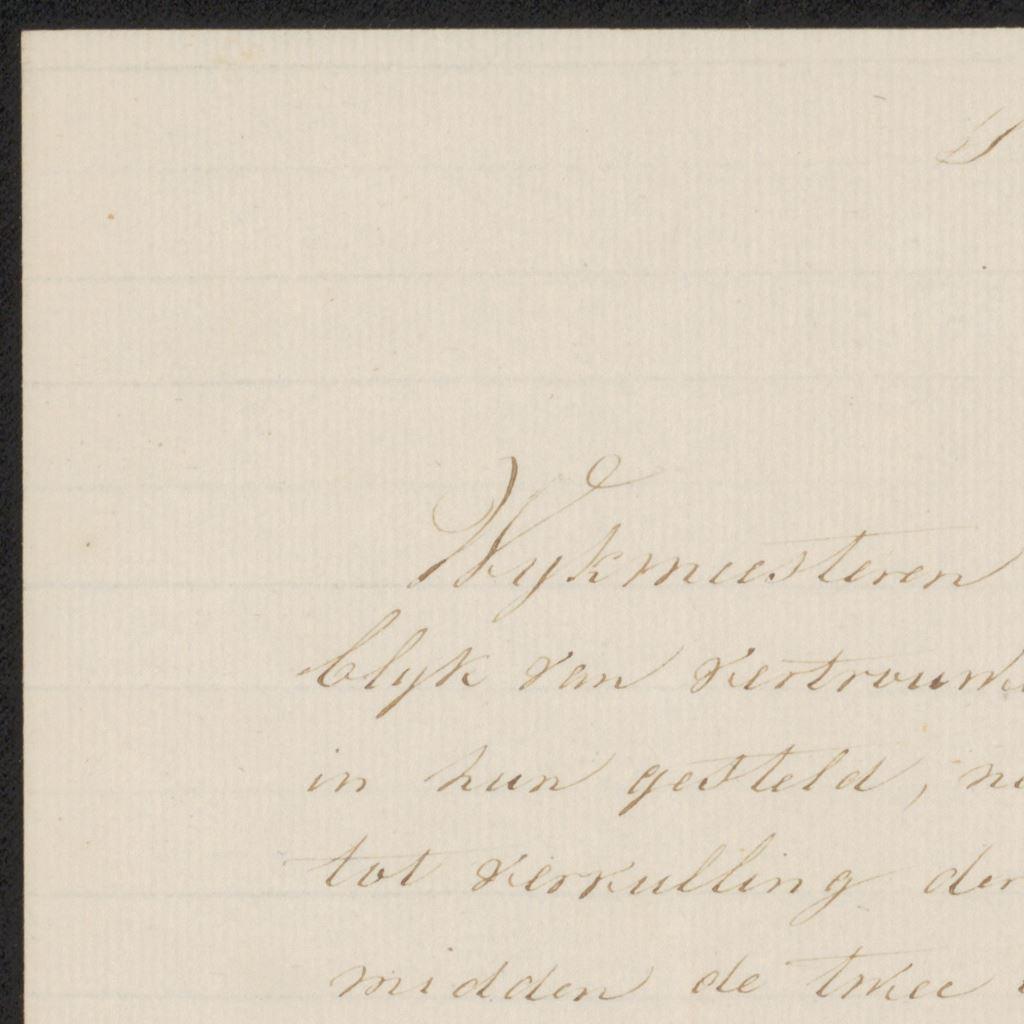 Wykmeesteren
blyk van vertrouwe
in hun gesteld, na
tot vervulling der
midden de twee